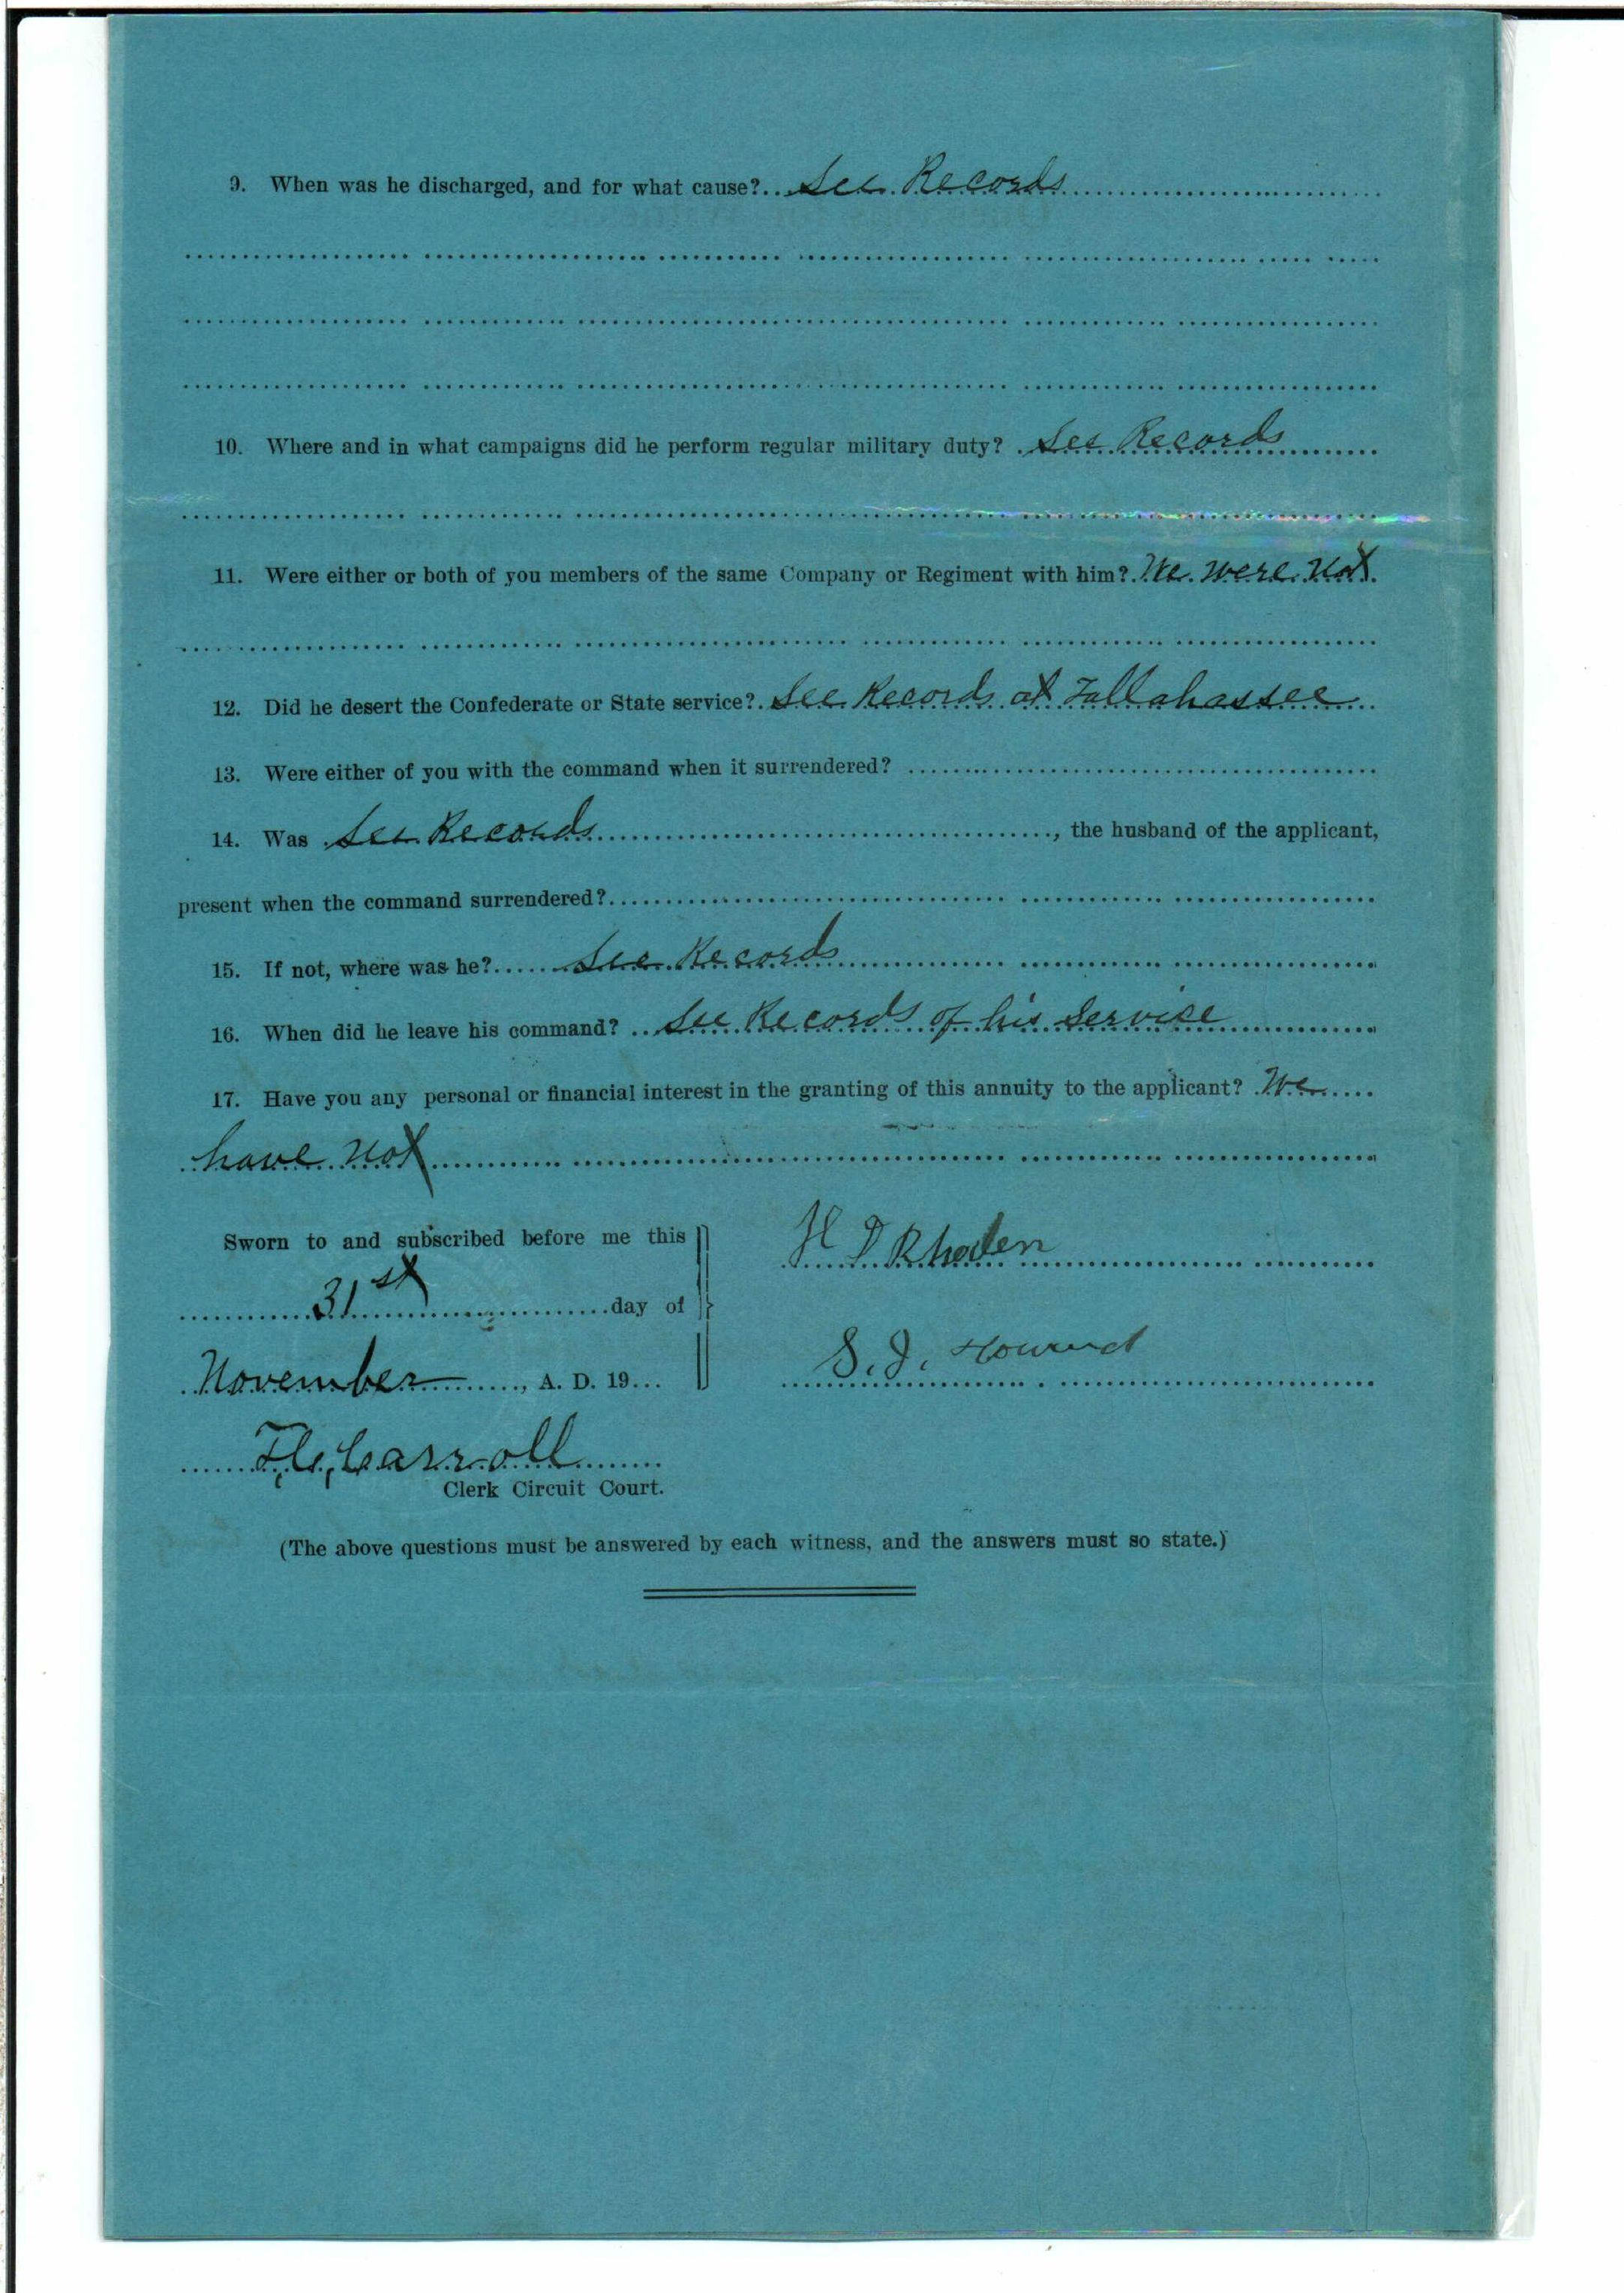 9. When was he discharged, and for what cause? See Records
10. Where and in what campaigns did he perform regular military duty? See Records
11. Were either or both of you members of the same Company or Regiment with him? We were not
12. Did he desert the Confederate or State service? See Records at Tallahassee
13. Were either of you with the command when it surrendered?
14. Was See Records, the husband of the applicant,
present when the command surrendered?
15. If not, where was he? See Records
16. When did he leave his command? See Records of his Service
17. Have you any personal or financial interest in the granting of this annuity to the applicant? We
have not
Sworn to and subscribed before me this
H D Rhoden
31st day of
S. J. Howard
November, A. D. 19...
F. C. Carroll
Clerk Circuit Court.
(The above questions must be answered by each witness, and the answers must so state.)